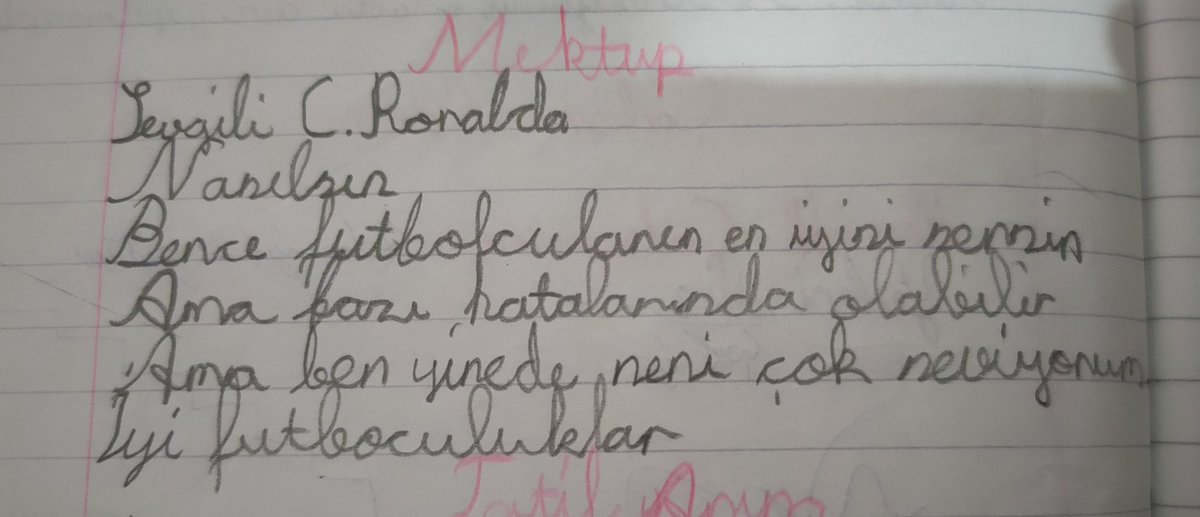 Mektup
Sevgili C. Ronaldo
Nasılsın
Bence futbolcuların en iyisi sensin
Ama bazı hatalarında olabilir
Ama ben yinede seni çok seviyorum
İyi futboculuklar
Tatil Anım